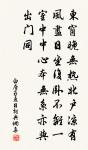 東窗晚無熱北户涼有
風盡日坐復卧不離一
室中中心本無系亦與
出門同
白居易夏日